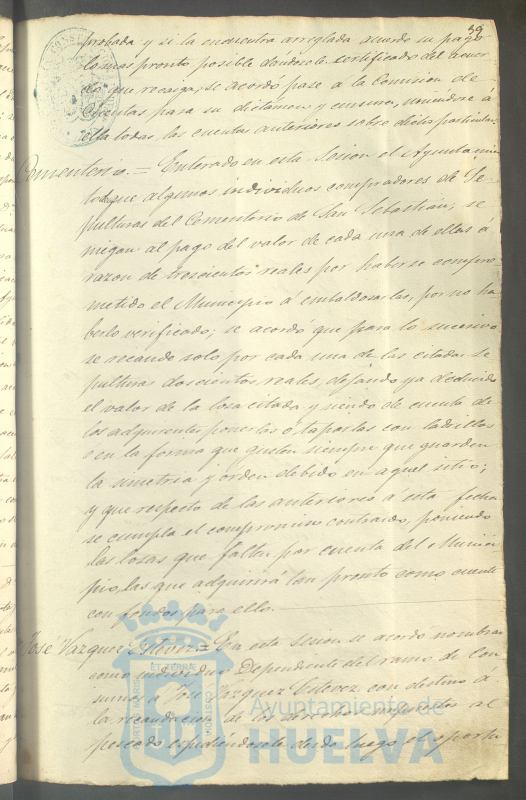 39
probada y si la encuentra arreglada acuerde su pago
lo mas pronto posible dandosele certificado del acuer
do que recaiga, se acordó pase a la Comision de
Cuentas para su dictamen y censura, uniendose á
ella todas las cuentas anteriores sobre dicho particular.
Cementerio.= Enterado en esta Sesion el Ayuntamien
to que algunos individuos compradores de Se
pulturas del Cementerio de San Sebastian, se
niegan al pago del valor de cada una de ellas á
razon de trescientos reales por haberse compro
metido el Municipio á embaldosarlas, por no ha
berlo verificado; se acordó que para lo sucesivo
se recaude solo por cada una de las citadas Se
pulturas doscientos reales, dejando ya deducido
el valor de la losa citada y siendo de cuenta de
los adquirentes ponerlas ó taparlas con ladrillos
o en la forma que gusten siempre que guarden
la simetria y orden debido en aquel sitio;
y que respecto de las anteriores á esta fecha
se cumpla el compromiso contraido, poniendo
las losas que falten por cuenta del Munici
pio, las que adquirirá tan pronto como cuente
con fondos para ello.
José Vazquez Estevez= En esta sesion se acordó nombrar
como individuo Dependiente del ramo de Con
sumos, a José Vazquez Estevez con destino á
la recaudacion de los derechos impuestos al
pescado espidiendosele desde luego el oportu
Ayuntamiento de
HUELVA